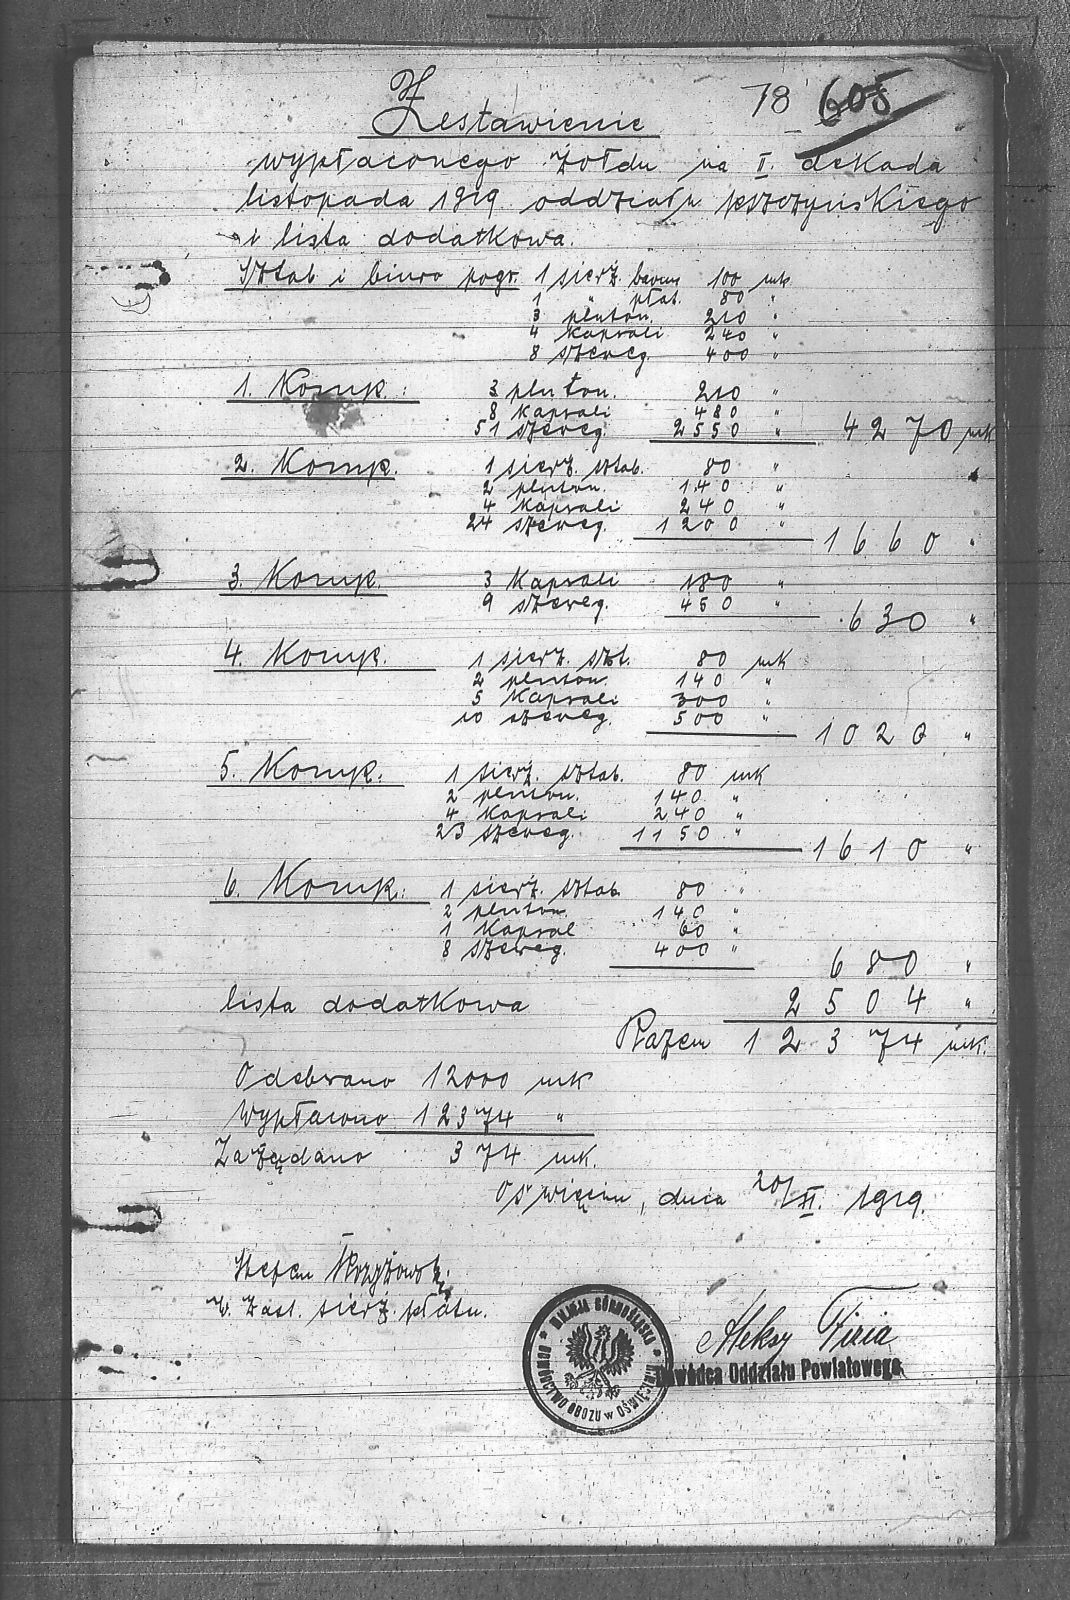 78 605
Zestawienie
wypłaconego żołdu na II. dekada
listopada 1919 oddziału pszczyńskiego
i lista dodatkowa.
Sztab i biuro pogr. 1 sierż. 100 mk
1 " płat. 80 "
3 pluton. 210 "
4 kaprali 240 "
8 szereg. 400 "
1. Komp.: 3 pluton. 210 "
8 kaprali 480 "
51 szereg. 2550 " 4270 mk
2. Komp. 1 sierż. sztab. 80 "
2 pluton. 140 "
4 kaprali 240 "
24 szereg. 1200 " 1660 "
3. Komp. 3 kaprali 180 "
9 szereg. 450 " 630 "
4. Komp. 1 sierż. szt. 80 mk
2 pluton. 140 "
5 kaprali 300 "
10 szereg. 500 " 1020 "
5. Komp. 1 sierż. sztab. 80 mk
2 pluton. 140 "
4 kaprali 240 "
23 szereg. 1150 " 1610 "
6. Komp: 1 sierż. sztab. 80 "
2 pluton. 140 "
1 kapral 60 "
8 szereg. 400 " 680 "
lista dodatkowa 2504 "
Razem 12374 mk.
Odebrano 12000 mk
Wypłacono 12374 "
Zażądano 374 mk.
Oświęcim, dnia 20/XI. 1919.
Stefan
w zast. sierż. płatn.
MILICJA GÓRNOŚLĄSKA
DOWÓDZTWO OBOZU w OŚWIĘCIMIU
Aleksy Fizia
Dowódca Oddziału Powiatowego